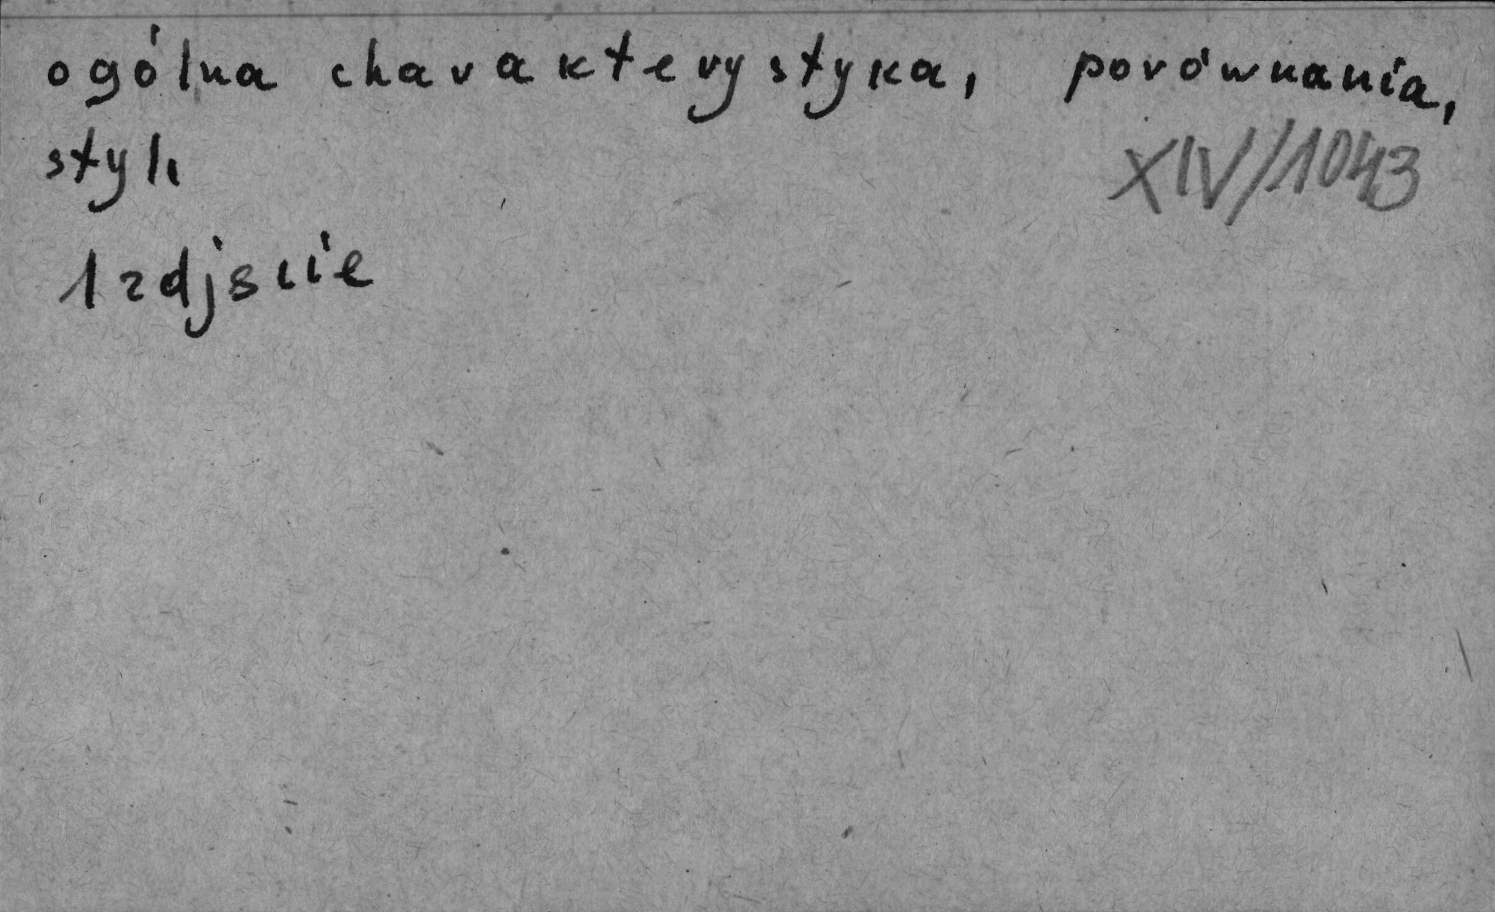 ogólna charakterystyka, porównania,
styl,
XIV/1043
1 zdjęcie